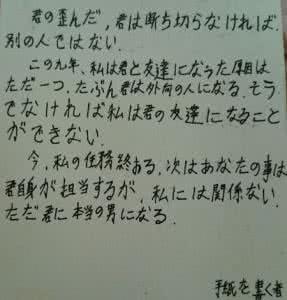 君の歪んだ, 君は断ち切らなければ.
別の人ではない.
この九年、私は君と友達になった原因は
ただ一つ. たぶん君は外向の人になる. そう
でなければ私は君の友達になること
ができない.
今, 私の任務終ある. 次はあなたの事は
君自身が担当するが, 私には関係ない.
ただ君に本当の男になる.
手紙を書く者